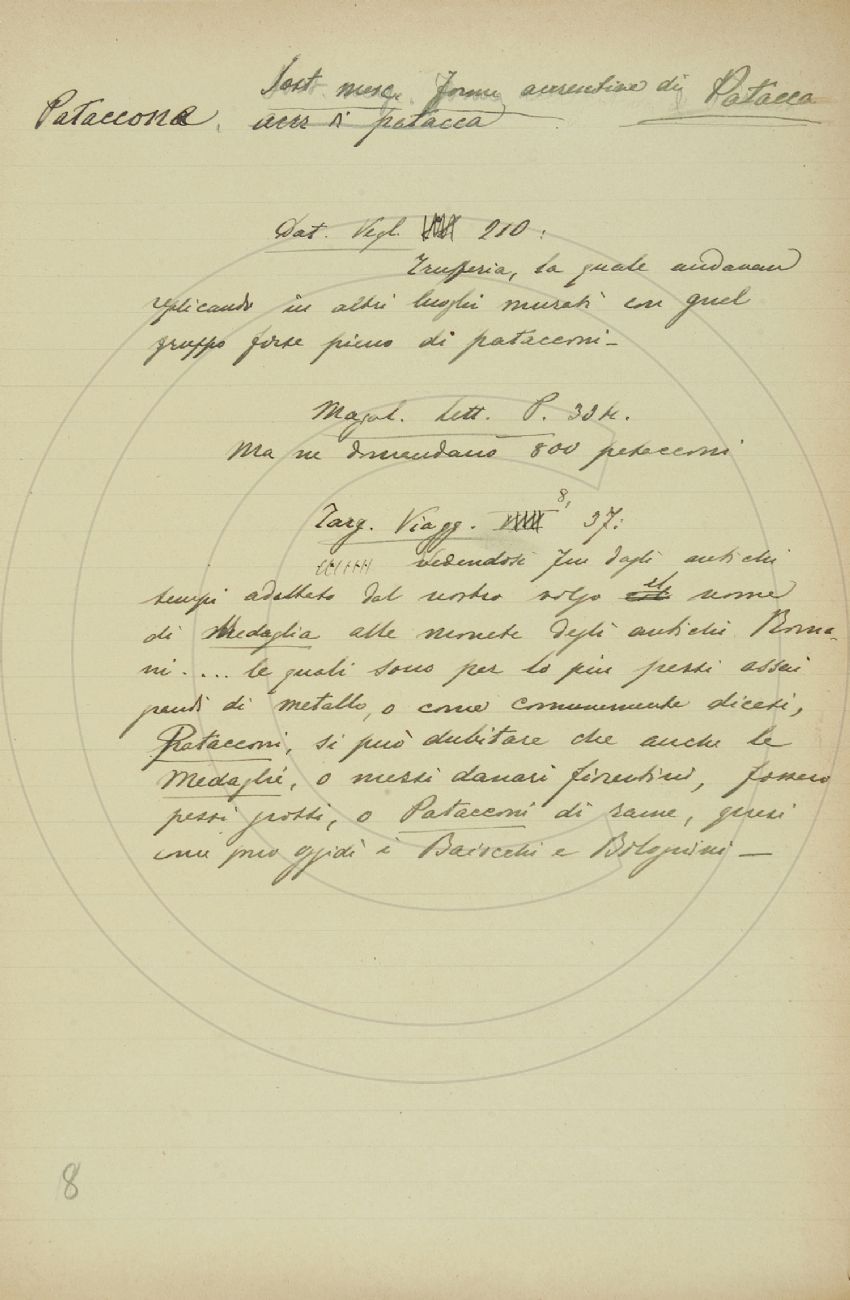 Pataccone. Sost. masc. Forma accrescitiva di Patacca
accr di patacca
Dat. Vegl. 210:
Trufferia, la quale andavan
replicando in altri luoghi murati con quel
gruppo forse pieno di patacconi –
Magal. Lett. P. 32
Ma ne domandano 800 patacconi
Targ. Viagg. 8, 37:
Vedendosi fin dagli antichi
tempi adattato dal nostro volgo il nome
di Medaglia alle monete degli antichi Roma-
ni .... le quali sono per lo più pezzi assai
grandi di metallo, o come comunemente dicesi,
Patacconi, si può dubitare che anche le
Medaglie, o mezzi danari fiorentini, fossero
pezzi grossi, o Patacconi di rame, quasi
come oggidì i Baiocchi e Bolognini —
8